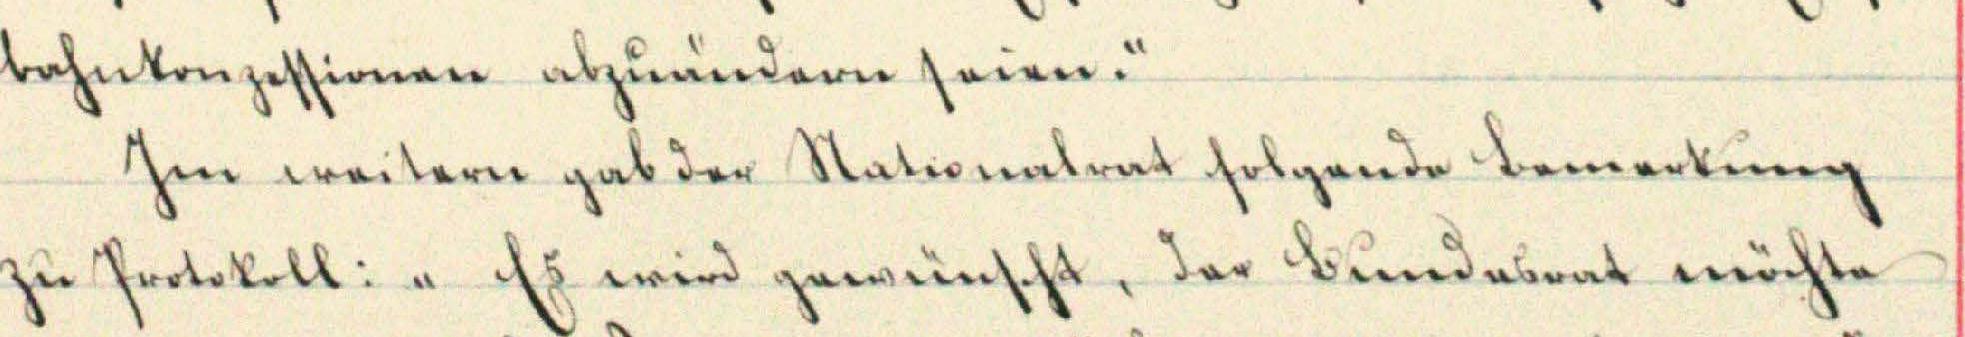 bahnkonzessionen abzuändern seien."
Im weitern gab der Nationalrat folgende Bemerkung
zu Protokoll: „ Es wird gewünscht, der Bundesrat möchte